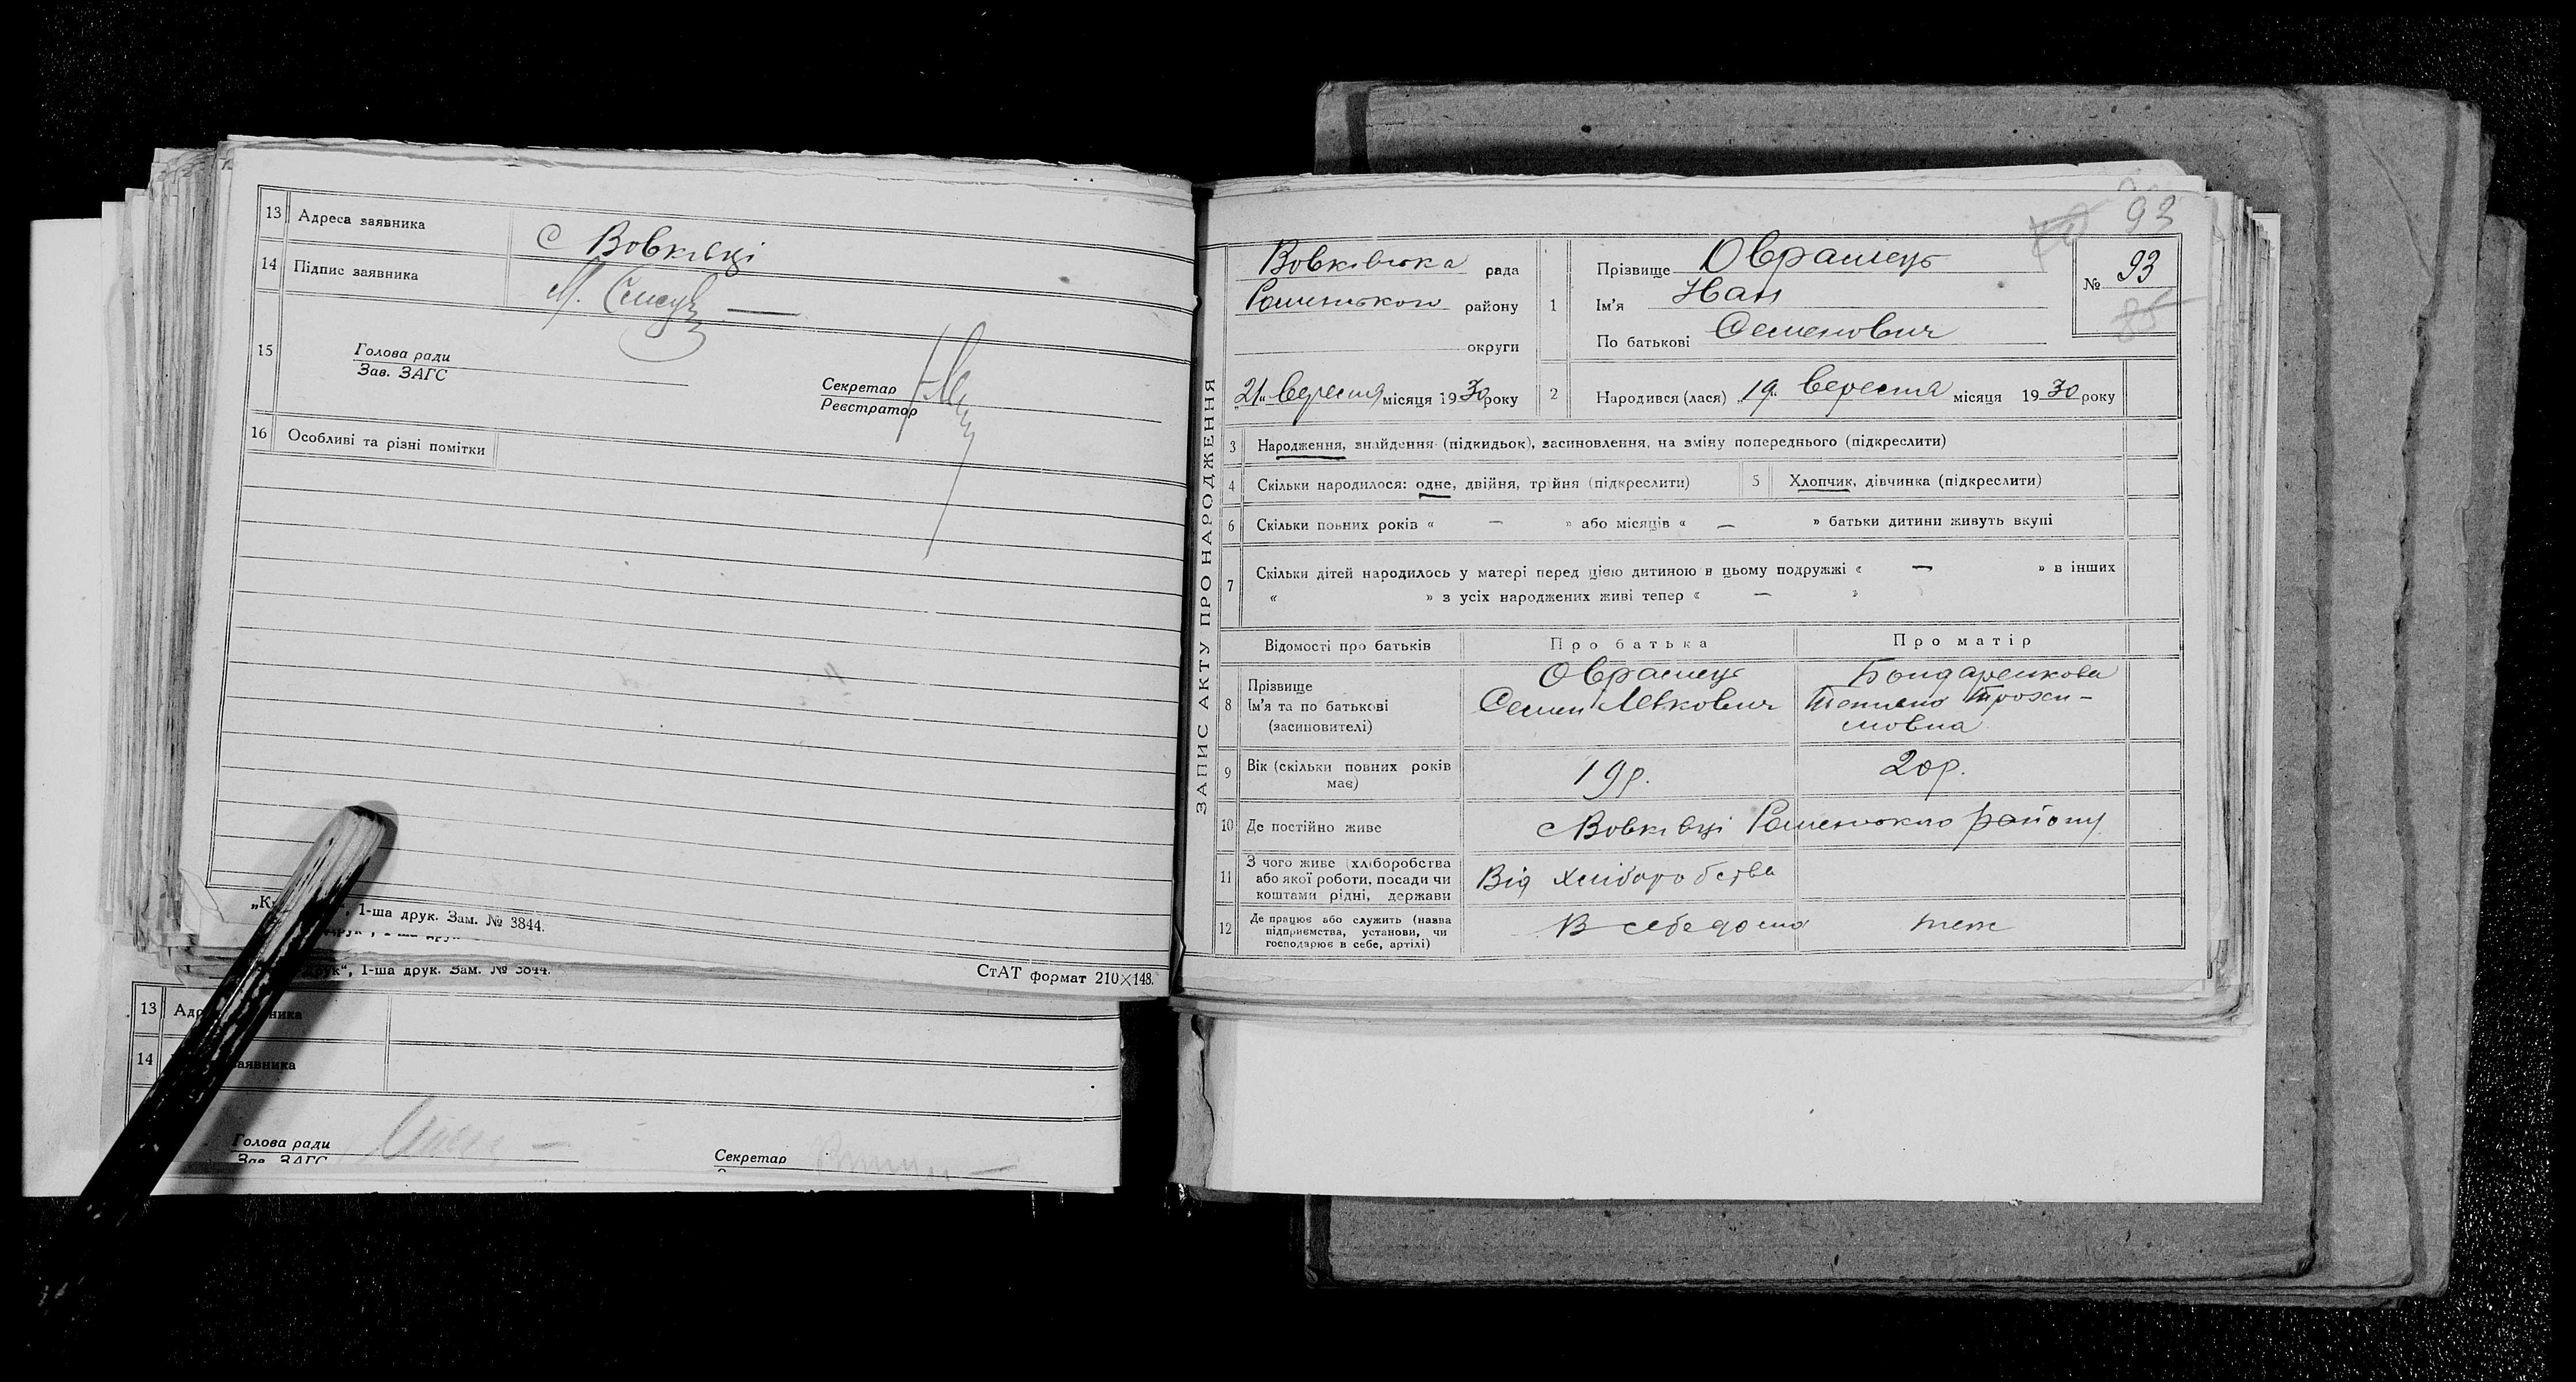 13 Адреса заявника с Вовківці
14 Підпис заявника М.
15 Голова ради
Зав. ЗАГС
Секретар
Реєстратор
16 Особливі та різні помітки
1-ша друк. Зам. № 3844.
друк“, 1-ша друк. Зам. № 3844.
СтАТ формат 210×148.
13
14
Голова ради
Зав. ЗАГС
Секретар
93
ЗАПИС АКТУ ПРО НАРОДЖЕННЯ
Вовківська рада
району
округи
„21“ вересня місяця 1930 року
1 Прізвище Оврамець
Ім'я Іван
По батькові Семенович
№ 93
85
2 Народився (лася) „19“ вересня місяця 1930 року
3 Народження, знайдення (підкидьок), засиновлення, на зміну попереднього (підкреслити)
4 Скільки народилося: одне, двійня, трійня (підкреслити) 5 Хлопчик, дівчинка (підкреслити)
6 Скільки повних років « — » або місяців « — » батьки дитини живуть вкупі
7 Скільки дітей народилось у матері перед цією дитиною в цьому подружжі « — » в інших
« » з усіх народжених живі тепер « — »
Відомості про батьків Про батька Про матір
8 Прізвище
Ім'я та по батькові
(засиновителі)
Оврамець
Семен Левкович
Бондаренкова
Трохи-
мовна
9 Вік (скільки повних років
має)
19 р. 20 р.
10 Де постійно живе с Вовківці Роменського району
11 З чого живе (хліборобства
або якої роботи, посади чи
коштами рідні, держави
Від хліборобства
12 Де працює або служить (назва
підприємства, установи, чи
господарює в себе, артілі)
В себе дома теж